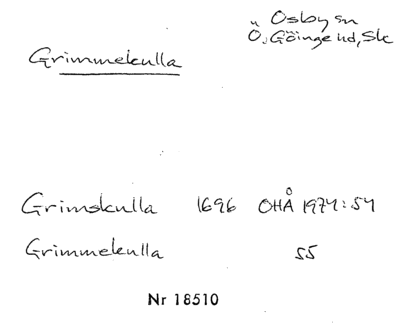 Osby sn
Ö. Göinge hd, Sk
Grimmekulla
Grimskulla 1696 OHÅ 1974:54
Grimmekulla 55
Nr 18510